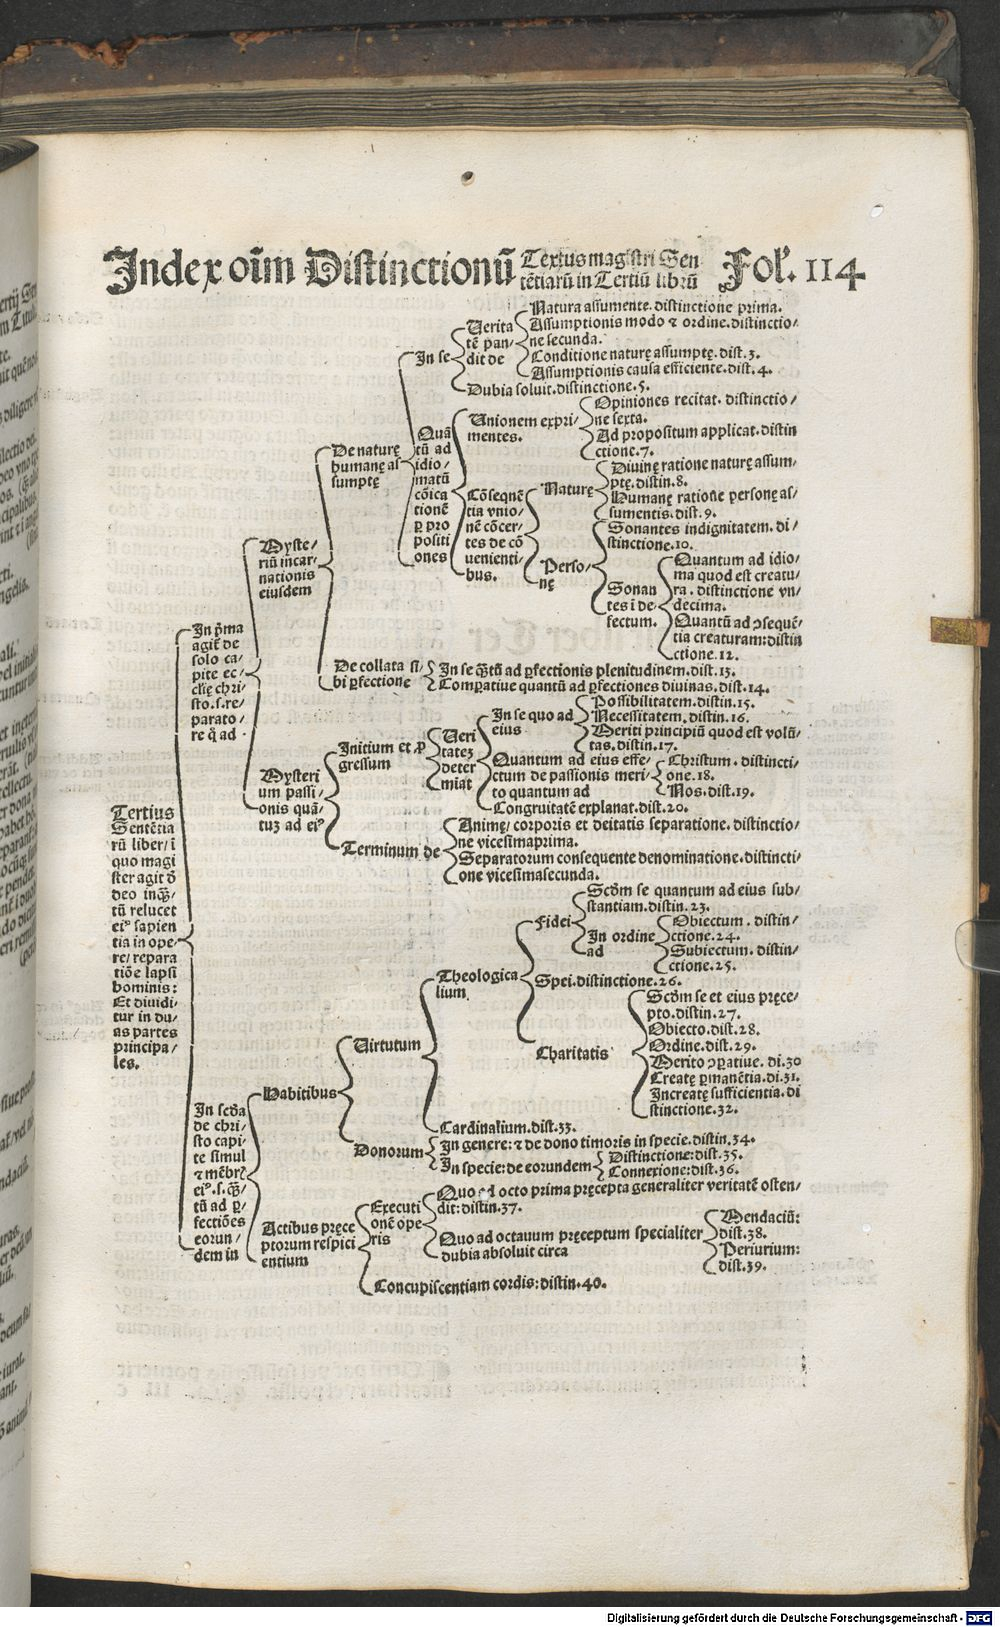 Index oim̄ Distinctionū Textus magistri Sen
tētiarū in Tertiū librū Fol. 114
Tertius
Sentētia
rū liber/ i
quo magi
ster agit d̄
deo inq̄ʒ/
tū relucet
eiꝰ sapien
tia in ope/
re/ repara
tiōe lapsi
hominis:
Et diuidi/
tur in du/
as partes
principa/
les.
In p̄ma
agit̄ de
solo ca/
pite ec/
clīe chri/
sto.s.re/
parato/
re q̄ ad
Myste/
riū incar/
nationis
eiusdem
De naturę
humanę as
sumptę
In se
Uerita
tē pan/
dit de
Natura assumente. distinctione prima.
Assumptionis modo ⁊ ordine. distinctio/
ne secunda.
Conditione naturę assumptę. dist. 3.
Assumptionis causa efficiente. dist. 4.
Dubia soluit. distinctione. 5.
Quā
tū ad
idio/
matū
cōica
tionē
ꝑ pro
positi
ones
Unionem expri/
mentes.
Opiniones recitat. distinctio/
ne sexta.
Ad propositum applicat. distin
ctione. 7.
Cōseqnē
tia vnio/
nē cōcer/
tes de cō
uenienti/
bus.
Naturę
Diuinę ratione naturę assum/
ptę. distin. 8.
Humanę ratione personę as/
sumentis. dist. 9.
Perso/
nę
Sonantes indignitatem. di/
stinctione. 10.
Sonan
tes ī de/
fectum.
Quantum ad idio/
ma quod est creatu/
ra. distinctione vn/
decima.
Quantū ad ↄsequē/
tia creaturam: distin
ctione. 12.
De collata si/
bi ꝑfectione
In se q̄ʒtū ad ꝑfectionis plenitudinem. dist. 13.
Comꝑatiue quantū ad ꝑfectiones diuinas. dist. 14.
Mysteri
um passi/
onis quā/
tuʒ ad eiꝰ
Initium et ꝓ
gressum
Ueri
tateʒ
deter
miat
In se quo ad
eius
Possibilitatem. distin. 15.
Necessitatem. distin. 16.
Meriti principiū quod est volū/
tas. distin. 17.
Quantum ad eius effe/
ctum de passionis meri/
to quantum ad
Christum. distincti/
one. 18.
Nos. dist. 19.
Congruitatē explanat. dist. 20.
Terminum de
Animę/ corporis et deitatis separatione. distinctio/
ne vicesimaprima.
Separatorum consequente denominatione. distincti/
one vicesimasecunda.
In scd̄a
de chri/
sto capi/
te simul
⁊ mēbr̄
eiꝰ.s.q̄ʒ/
tū ad ꝑ/
fectiōes
eorun/
dem in
Habitibus
Uirtutum
Theologica
lium
Fidei
Scd̄m se quantum ad eius sub/
stantiam. distin. 23.
In ordine
ad
Obiectum. distin/
ctione. 24.
Subiectum. distin/
ctione. 25.
Spei. distinctione. 26.
Charitatis
Scd̄m se et eius pręce/
pto. distin. 27.
Obiecto. dist. 28.
Ordine. dist. 29.
Merito ↄꝑatiue. di. 30
Creatę ꝑmanētia. di. 31.
Increatę sufficientia. di
stinctione. 32.
Cardinalium. dist. 33.
Donorum
In genere: ⁊ de dono timoris in specie. distin. 34.
In specie: de eorundem
Distinctione: dist. 35.
Connexione: dist. 36.
Actibus pręce
ptorum respici
entium
Executi
onē ope
ris
Quo ad octo prima pręcepta generaliter veritatē osten/
dit: distin. 37.
Quo ad octauum pręceptum specialiter
dubia absoluit circa
Mendaciū:
dist. 38.
Periurium:
dist. 39.
Concupiscentiam cordis: distin. 40.
Digitalisierung gefördert durch die Deutsche Forschungsgemeinschaft - DFG